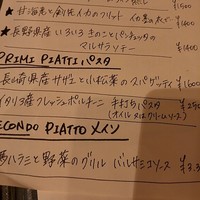 ★甘海老と剣先イカのフリット イカ墨の ¥1600
★長野県産 いろいろきのことパンチェッタの
マルサラソテー ¥1400
PRIMI PIATTI パスタ
長崎県産サザエと小松菜のスパゲッティ ¥1600
イタリア産フレッシュポルチーニ 手打ちパスタ
(オイル又はクリームソース)
SECONDO PIATTO メイン
馬ハラミと野菜のグリル バルサミコソース